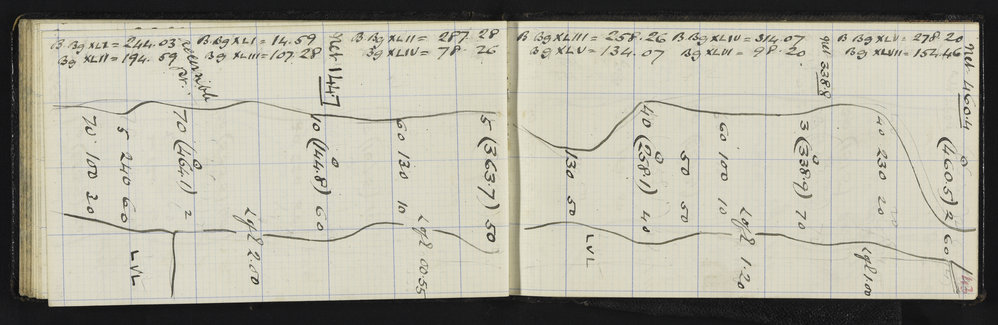 B Bg XLI = 244.03
Bg XLII = 194.59
B.Bg XLI = 14.59
Bg XLIII = 107.28
B Bg XLII = 287.28
Bg XLIV = 78.26
B Bg XLIII = 258.26
Bg XLV = 134.07
B Bg XLIV = 314.07
Bg XLVI = 98.20
B Bg XLV = 278.20
Bg XLVII = 154.46
net 144.7
net 338.8
net 460.4
70 100 20
5 240 60
70 (464.1) 2
Lgf 2 2.00
10 (144.8) 60
60 130 10
Lgf 2 00.55
5 (363.7) 50
LVL
130 50
LVL
40 (258.1) 40
50 50
60 100 10
Lgf 2 1.20
3 (338.9) 70
40 230 20
Lgf 2 1.00
(460.5) 2 60